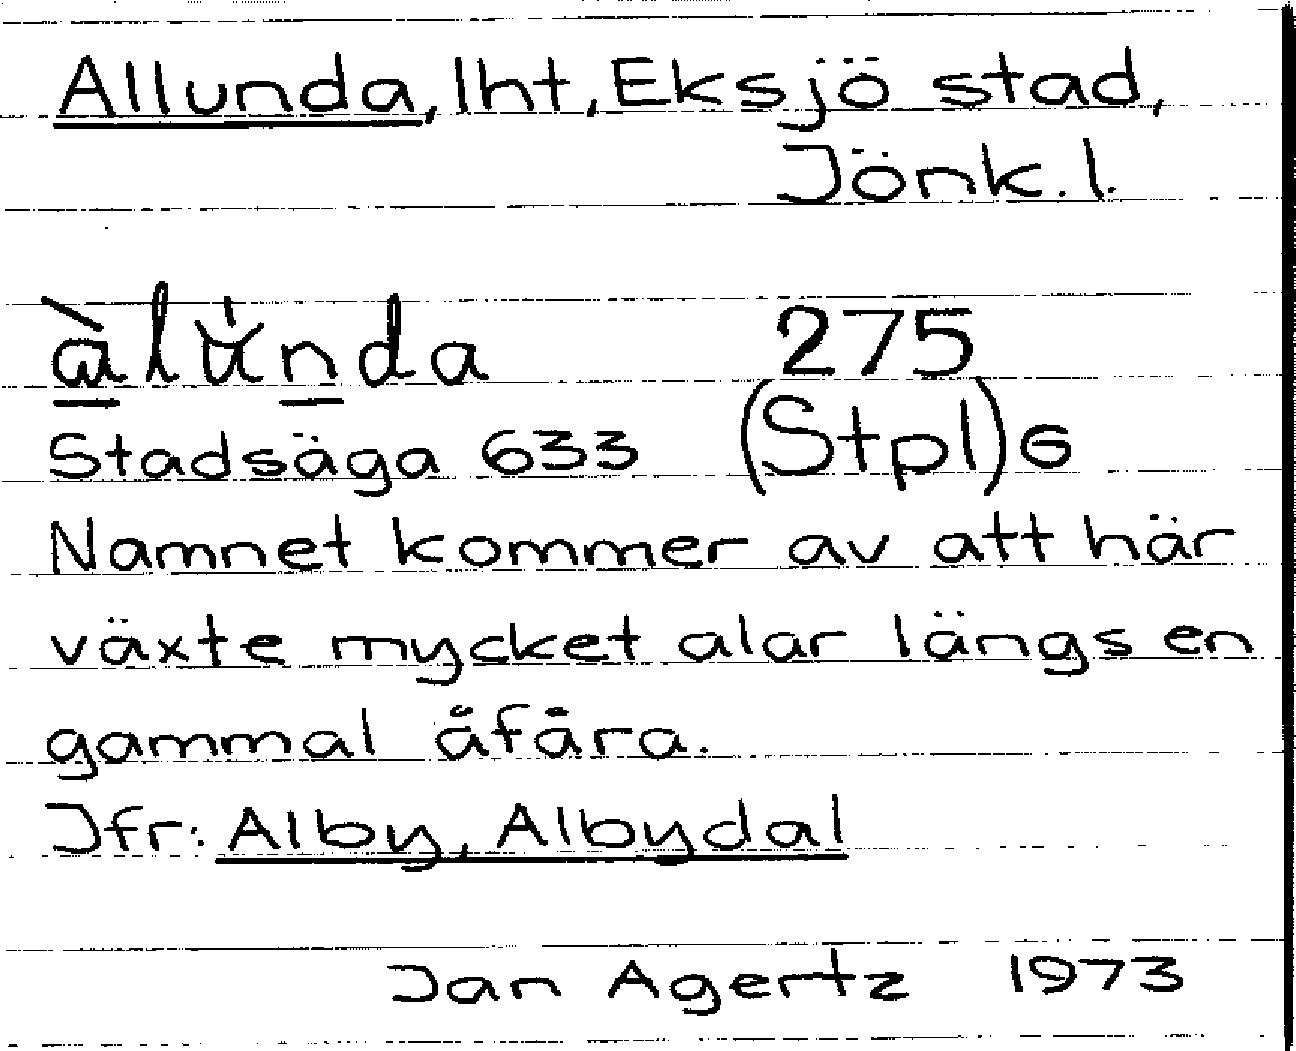 Allunda, lht, Eksjö stad,
Jönk. l.
àlǘnda 275
Stadsäga 633 (Stpl) G
Namnet kommer av att här
växte mycket alar längs en
gammal åfåra.
Jfr: Alby, Albydal
Jan Agertz 1973